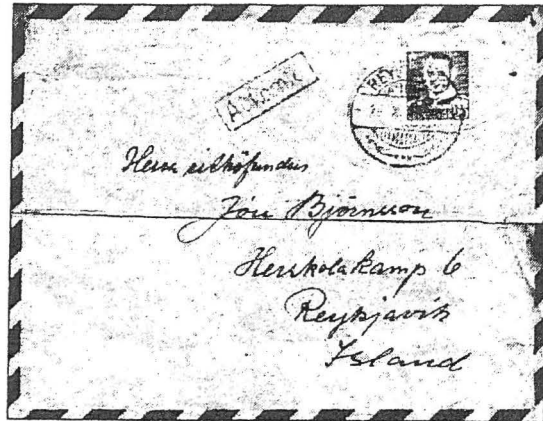 REY
Herra rithöfundur
Jón Bjørnsson
Herskolakamp 6
Reykjavik
Island